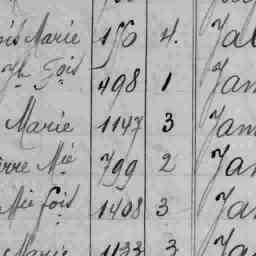 ois Marie 156 4. Jal
Jh fois 498 1 Jan
Marie 1147 3 Jan
erre Mie 799 2 Jan
Mie fois 1408 3 Jan
Marie 1133 3 Ja